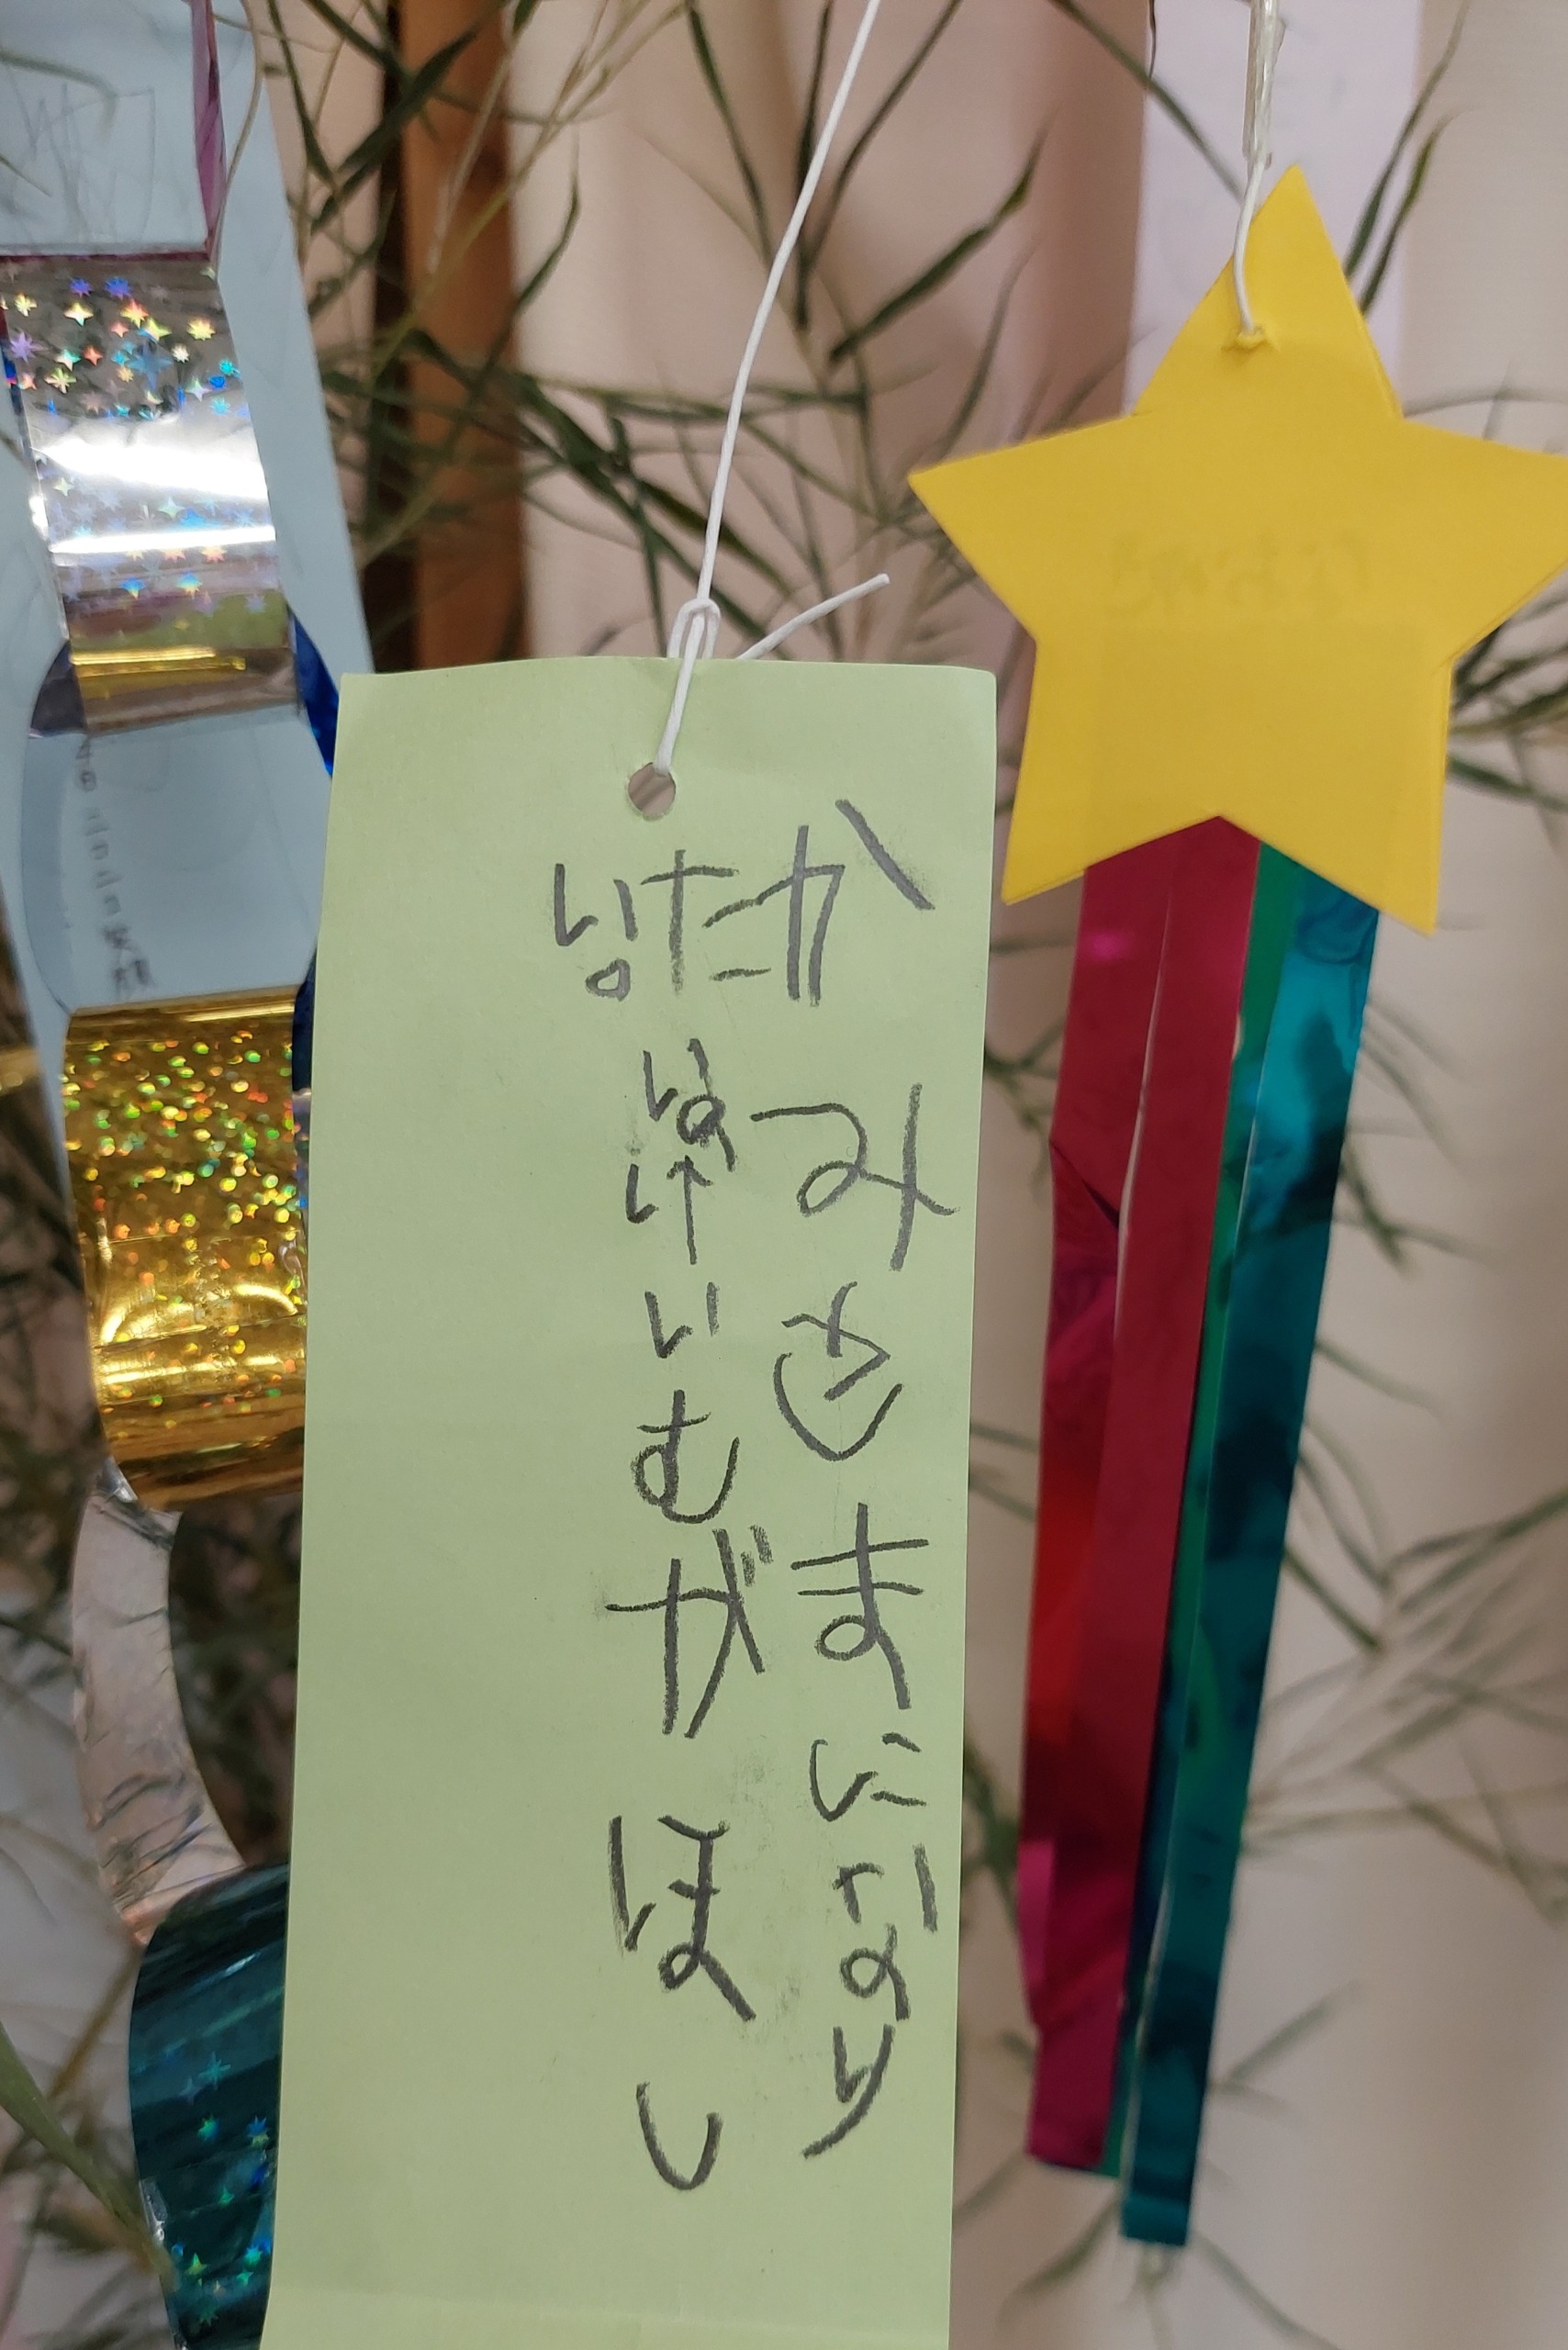 かみさまになり
たはけいむがほし
い。